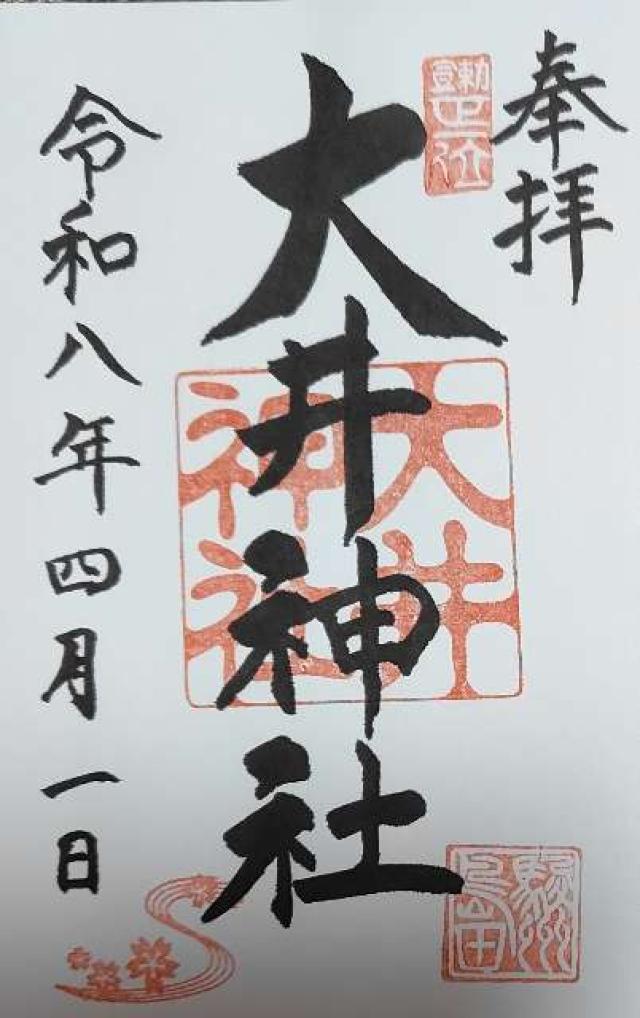 奉拝
勅宣正一位
大井神社
大井神社
駿州島田
令和八年四月一日